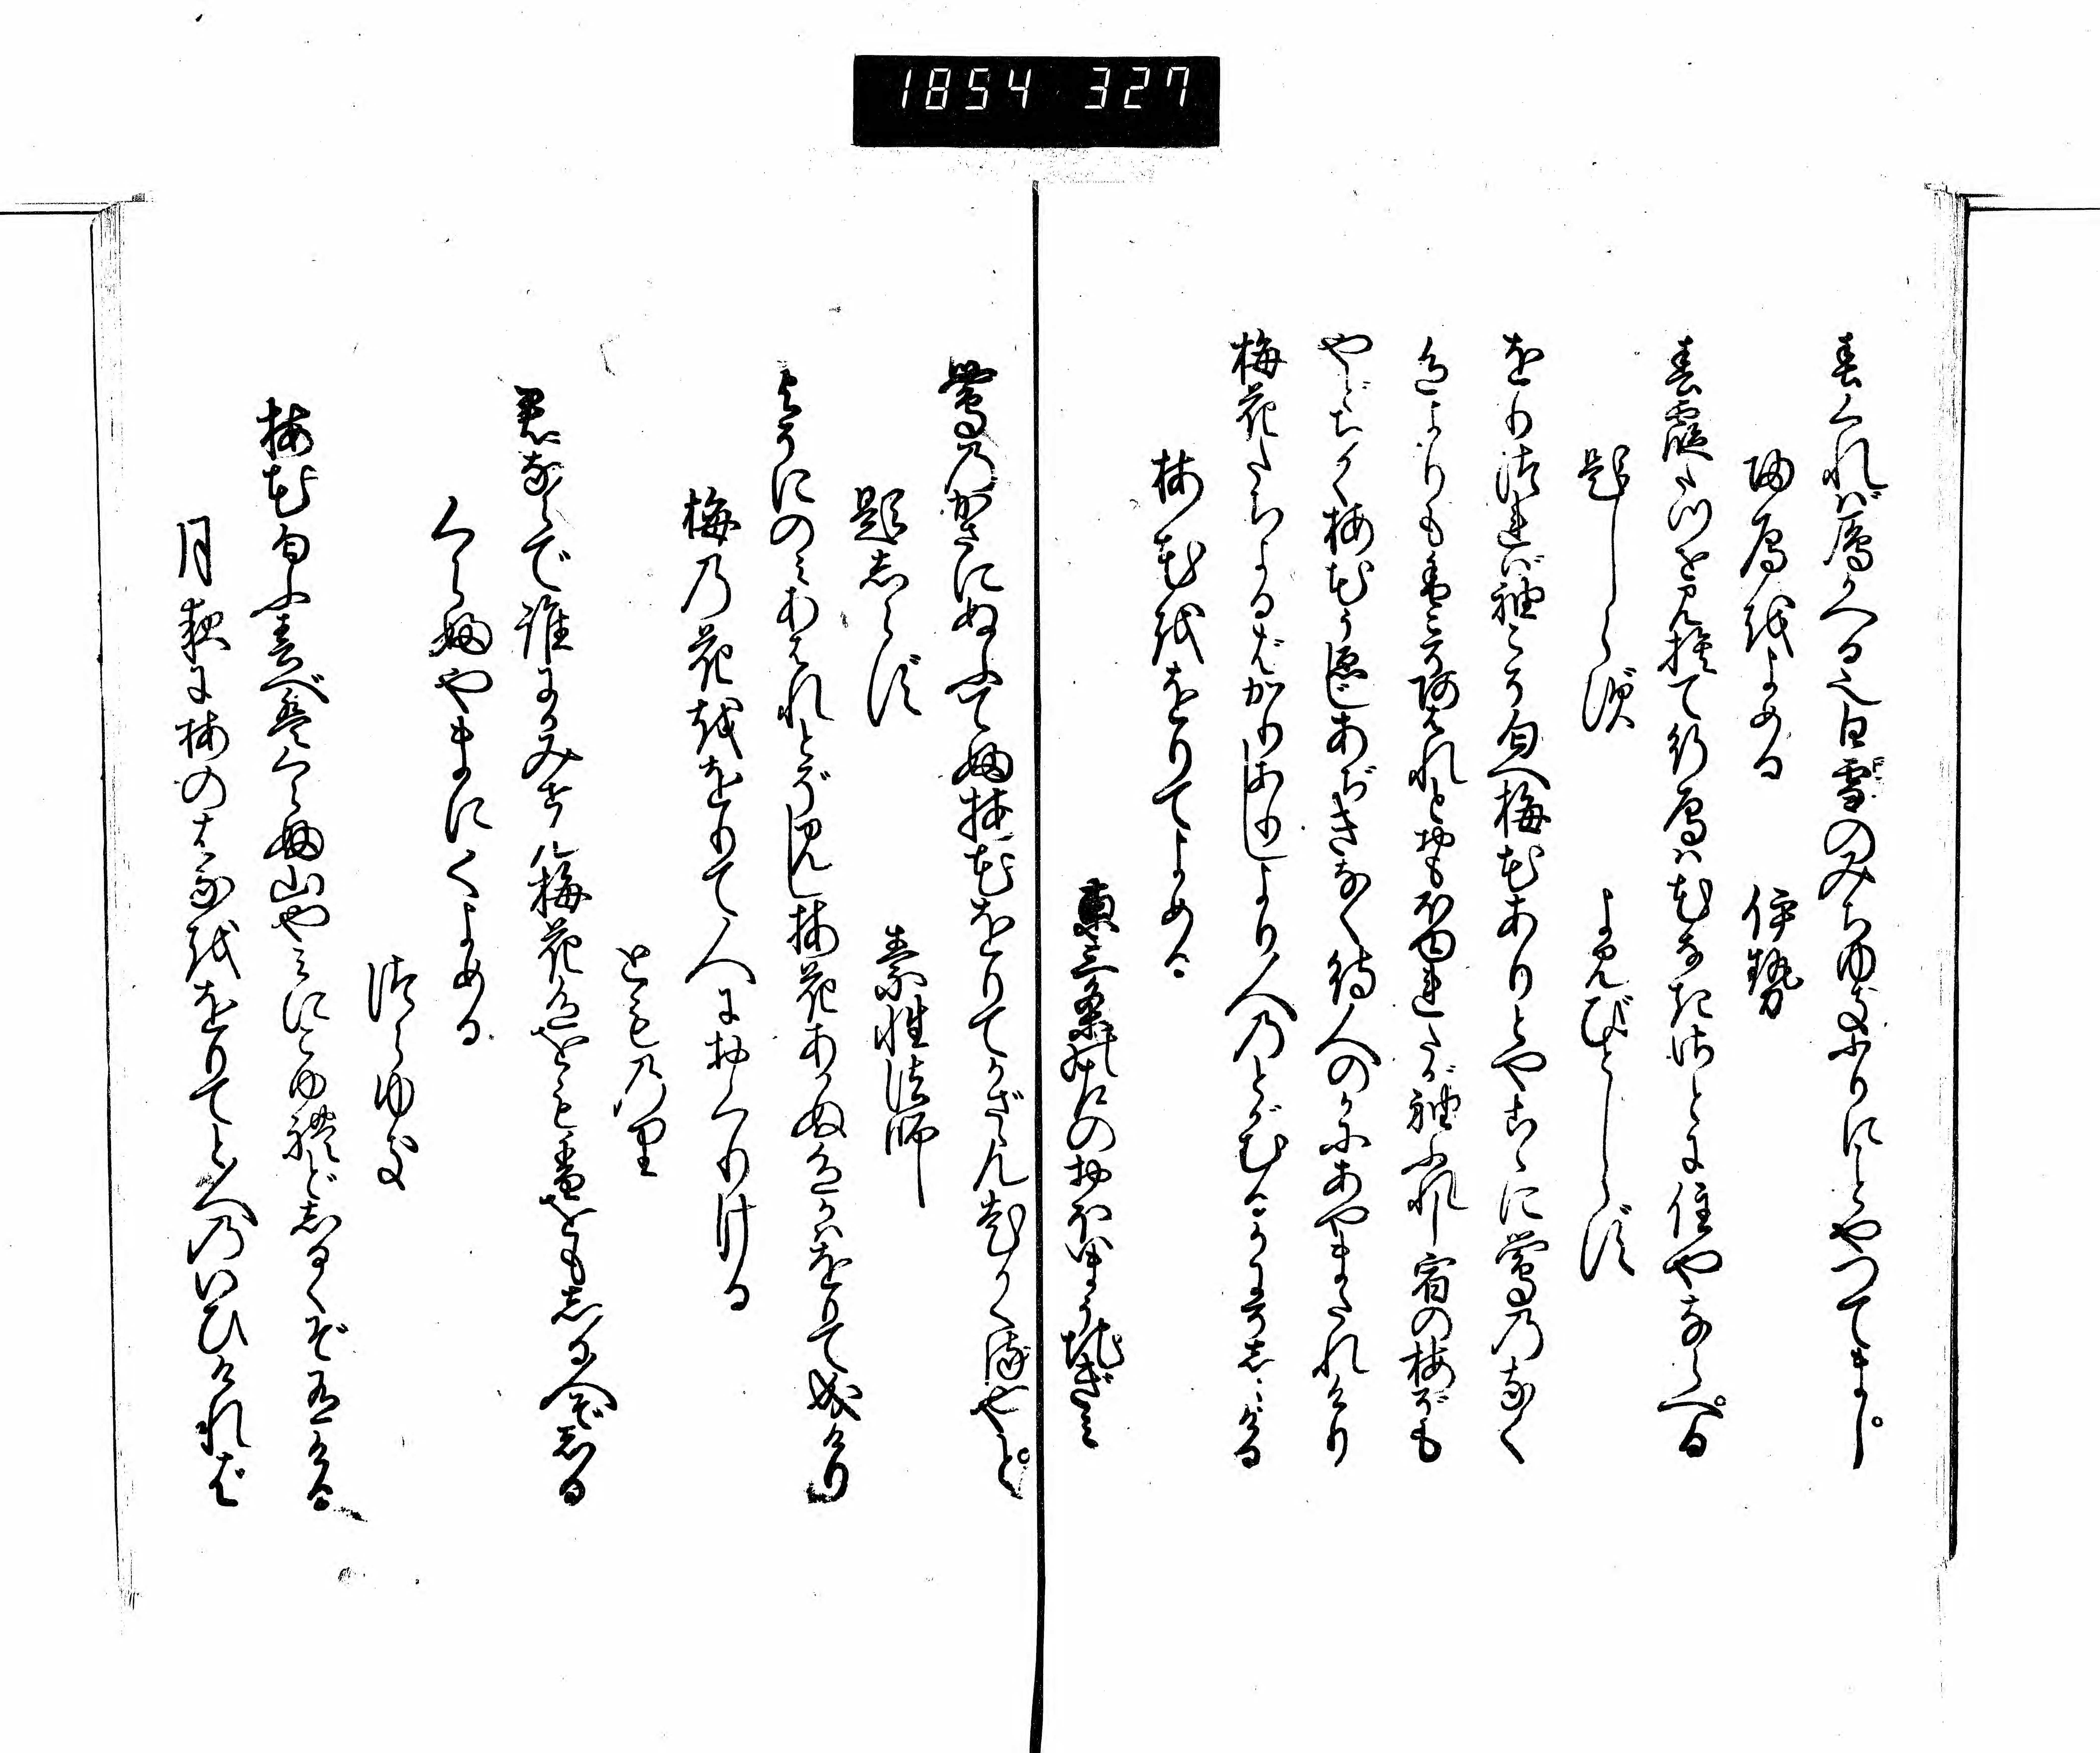 1854 327
春くれば鴈かへる也白雲のみちゆきふりにことやつてまし
帰鴈をよめる　伊勢
春霞たつを見捨て行鴈は花なき里に住やならへる
題しらず　よみ人しらず
をりつれば袖こそ匂へ梅花ありとやこゝに鶯のなく
色よりも香こそあはれとおもほゆれたが袖ふれし宿の梅ぞも
やどちかく梅花うゑじあぢきなく待人のかにあやまたれけり
梅花たちよるばかりありしより人のとがむるかにぞしみける
梅花をとりてよめる
東三条の左のおほいまうちぎみ
鶯のかさにぬふてふ梅花をりてかざさん老かくるやと
題しらず　素性法師
よそにのみあはれとぞ見し梅花あかぬ色かはをりて成けり
梅の花をとりて人におくりける
とものり
君ならで誰にかみせん梅花色をもかをもしる人ぞしる
くらぶやまにてよめる
つらゆき
梅花匂ふ春べはくらぶ山やみにこゆれどしるくぞ有ける
月夜に梅のはなををりてと人のいひければ